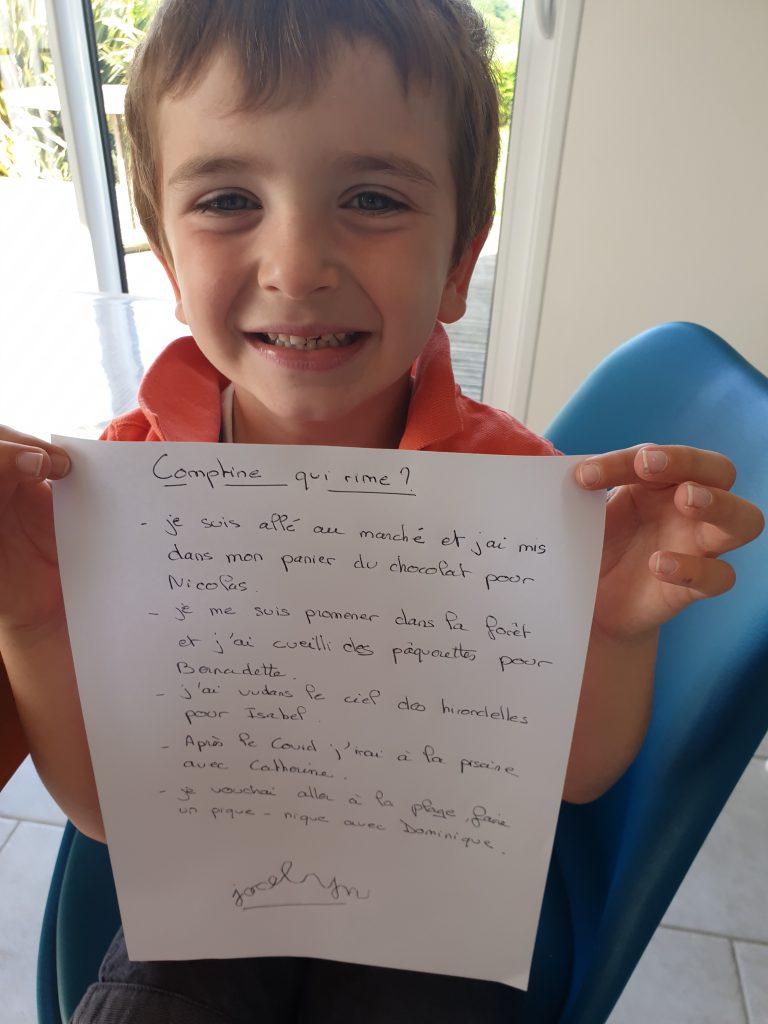 Comptine qui rime ?
- je suis allé au marché et j'ai mis
dans mon panier du chocolat pour
Nicolas.
- je me suis promener dans la forêt
et j'ai cueilli des pâquerettes pour
Bernadette.
- j'ai vu dans le ciel des hirondelles
pour Isabel.
- Après le Covid j'irai à la piscine
avec Catherine.
- je vouchai aller à la plage, faire
un pique-nique avec Dominique.
jocelyn